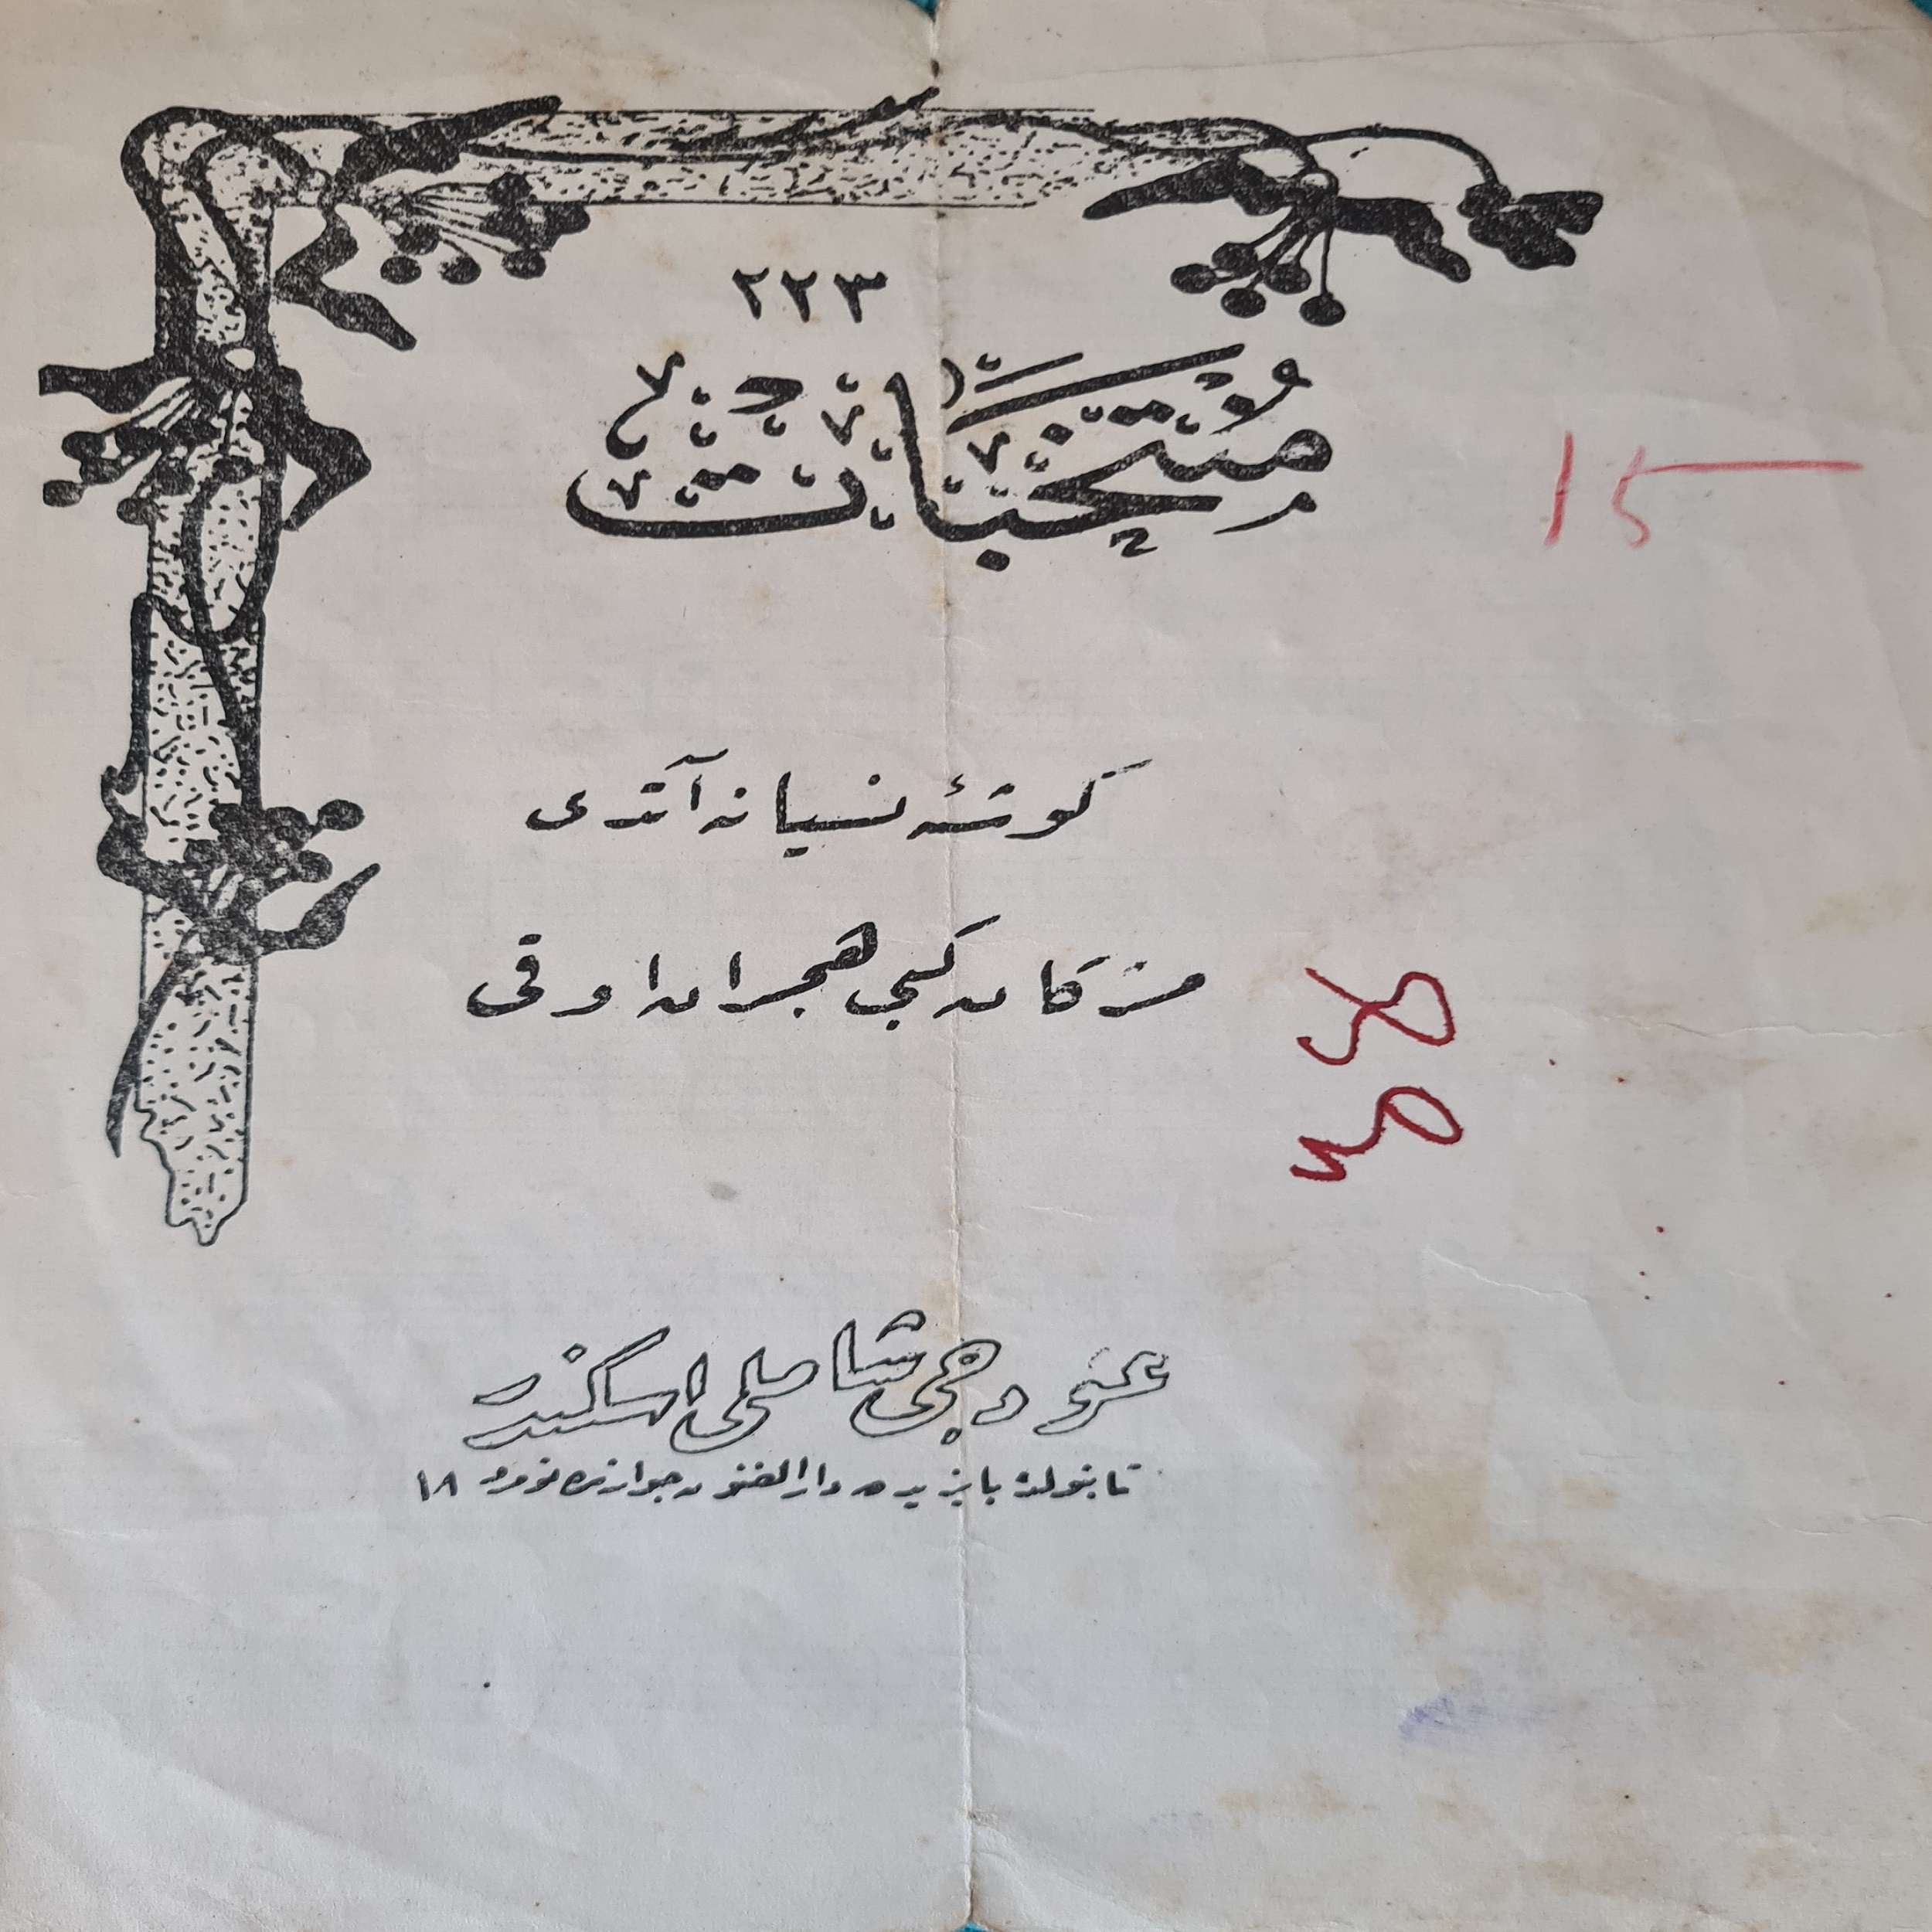 ٢٢٣
مُنْتَخَبَاتْ
15
كوشۀ نسيانه آتدى
مژكان كبى هجران اوقى
عودجى شاملى اسكندر
تانبولده بايزيدده دارالفنون جوارنده نومرو ١٨